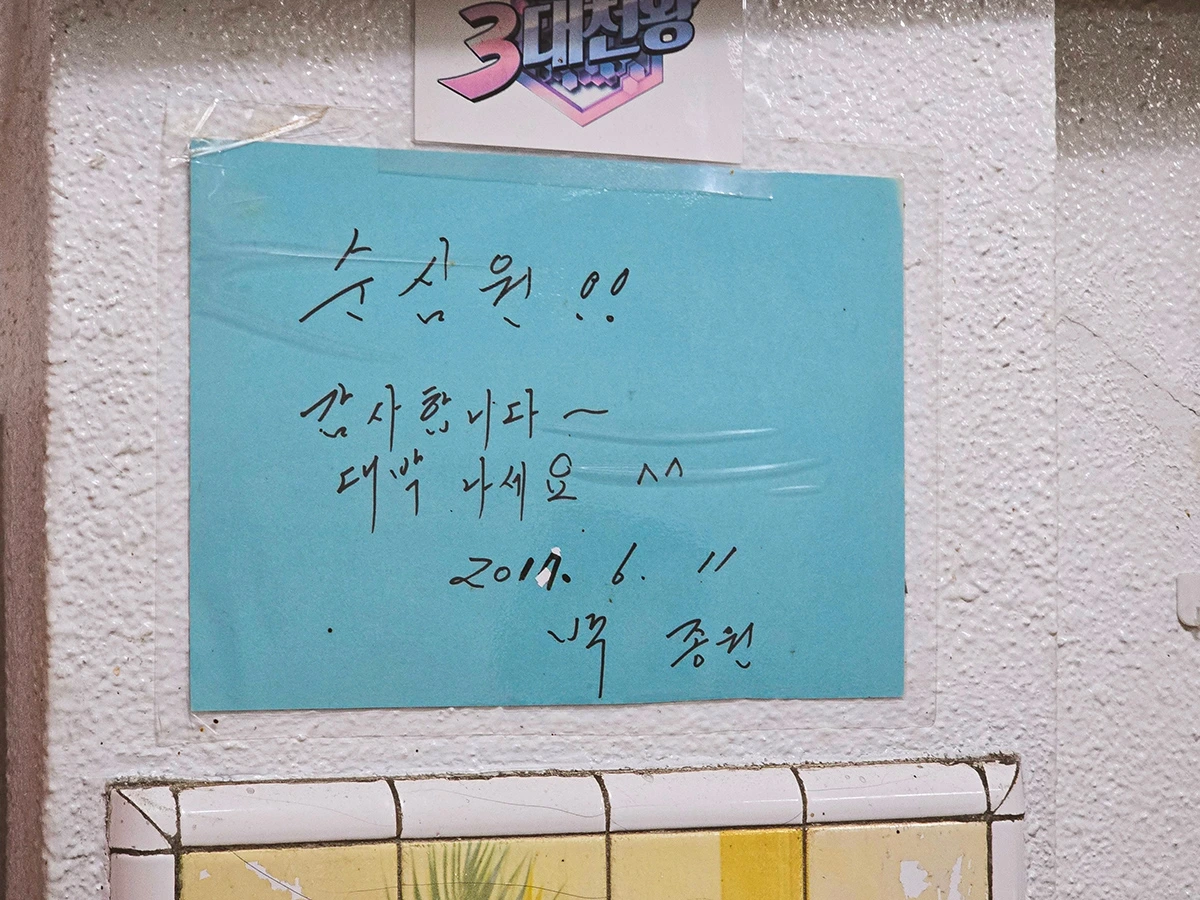 3대천왕
순심원!!
감사합니다~
대박 나세요 ^^
2017. 6. 11
백 종원